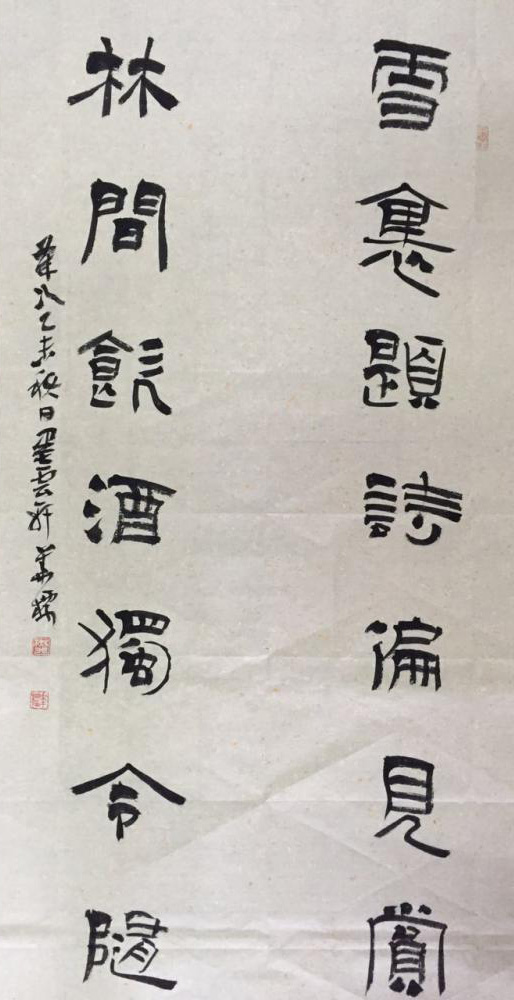 雪裏題詩偏見賞
林間飲酒獨令隨
乙未秋日雲軒